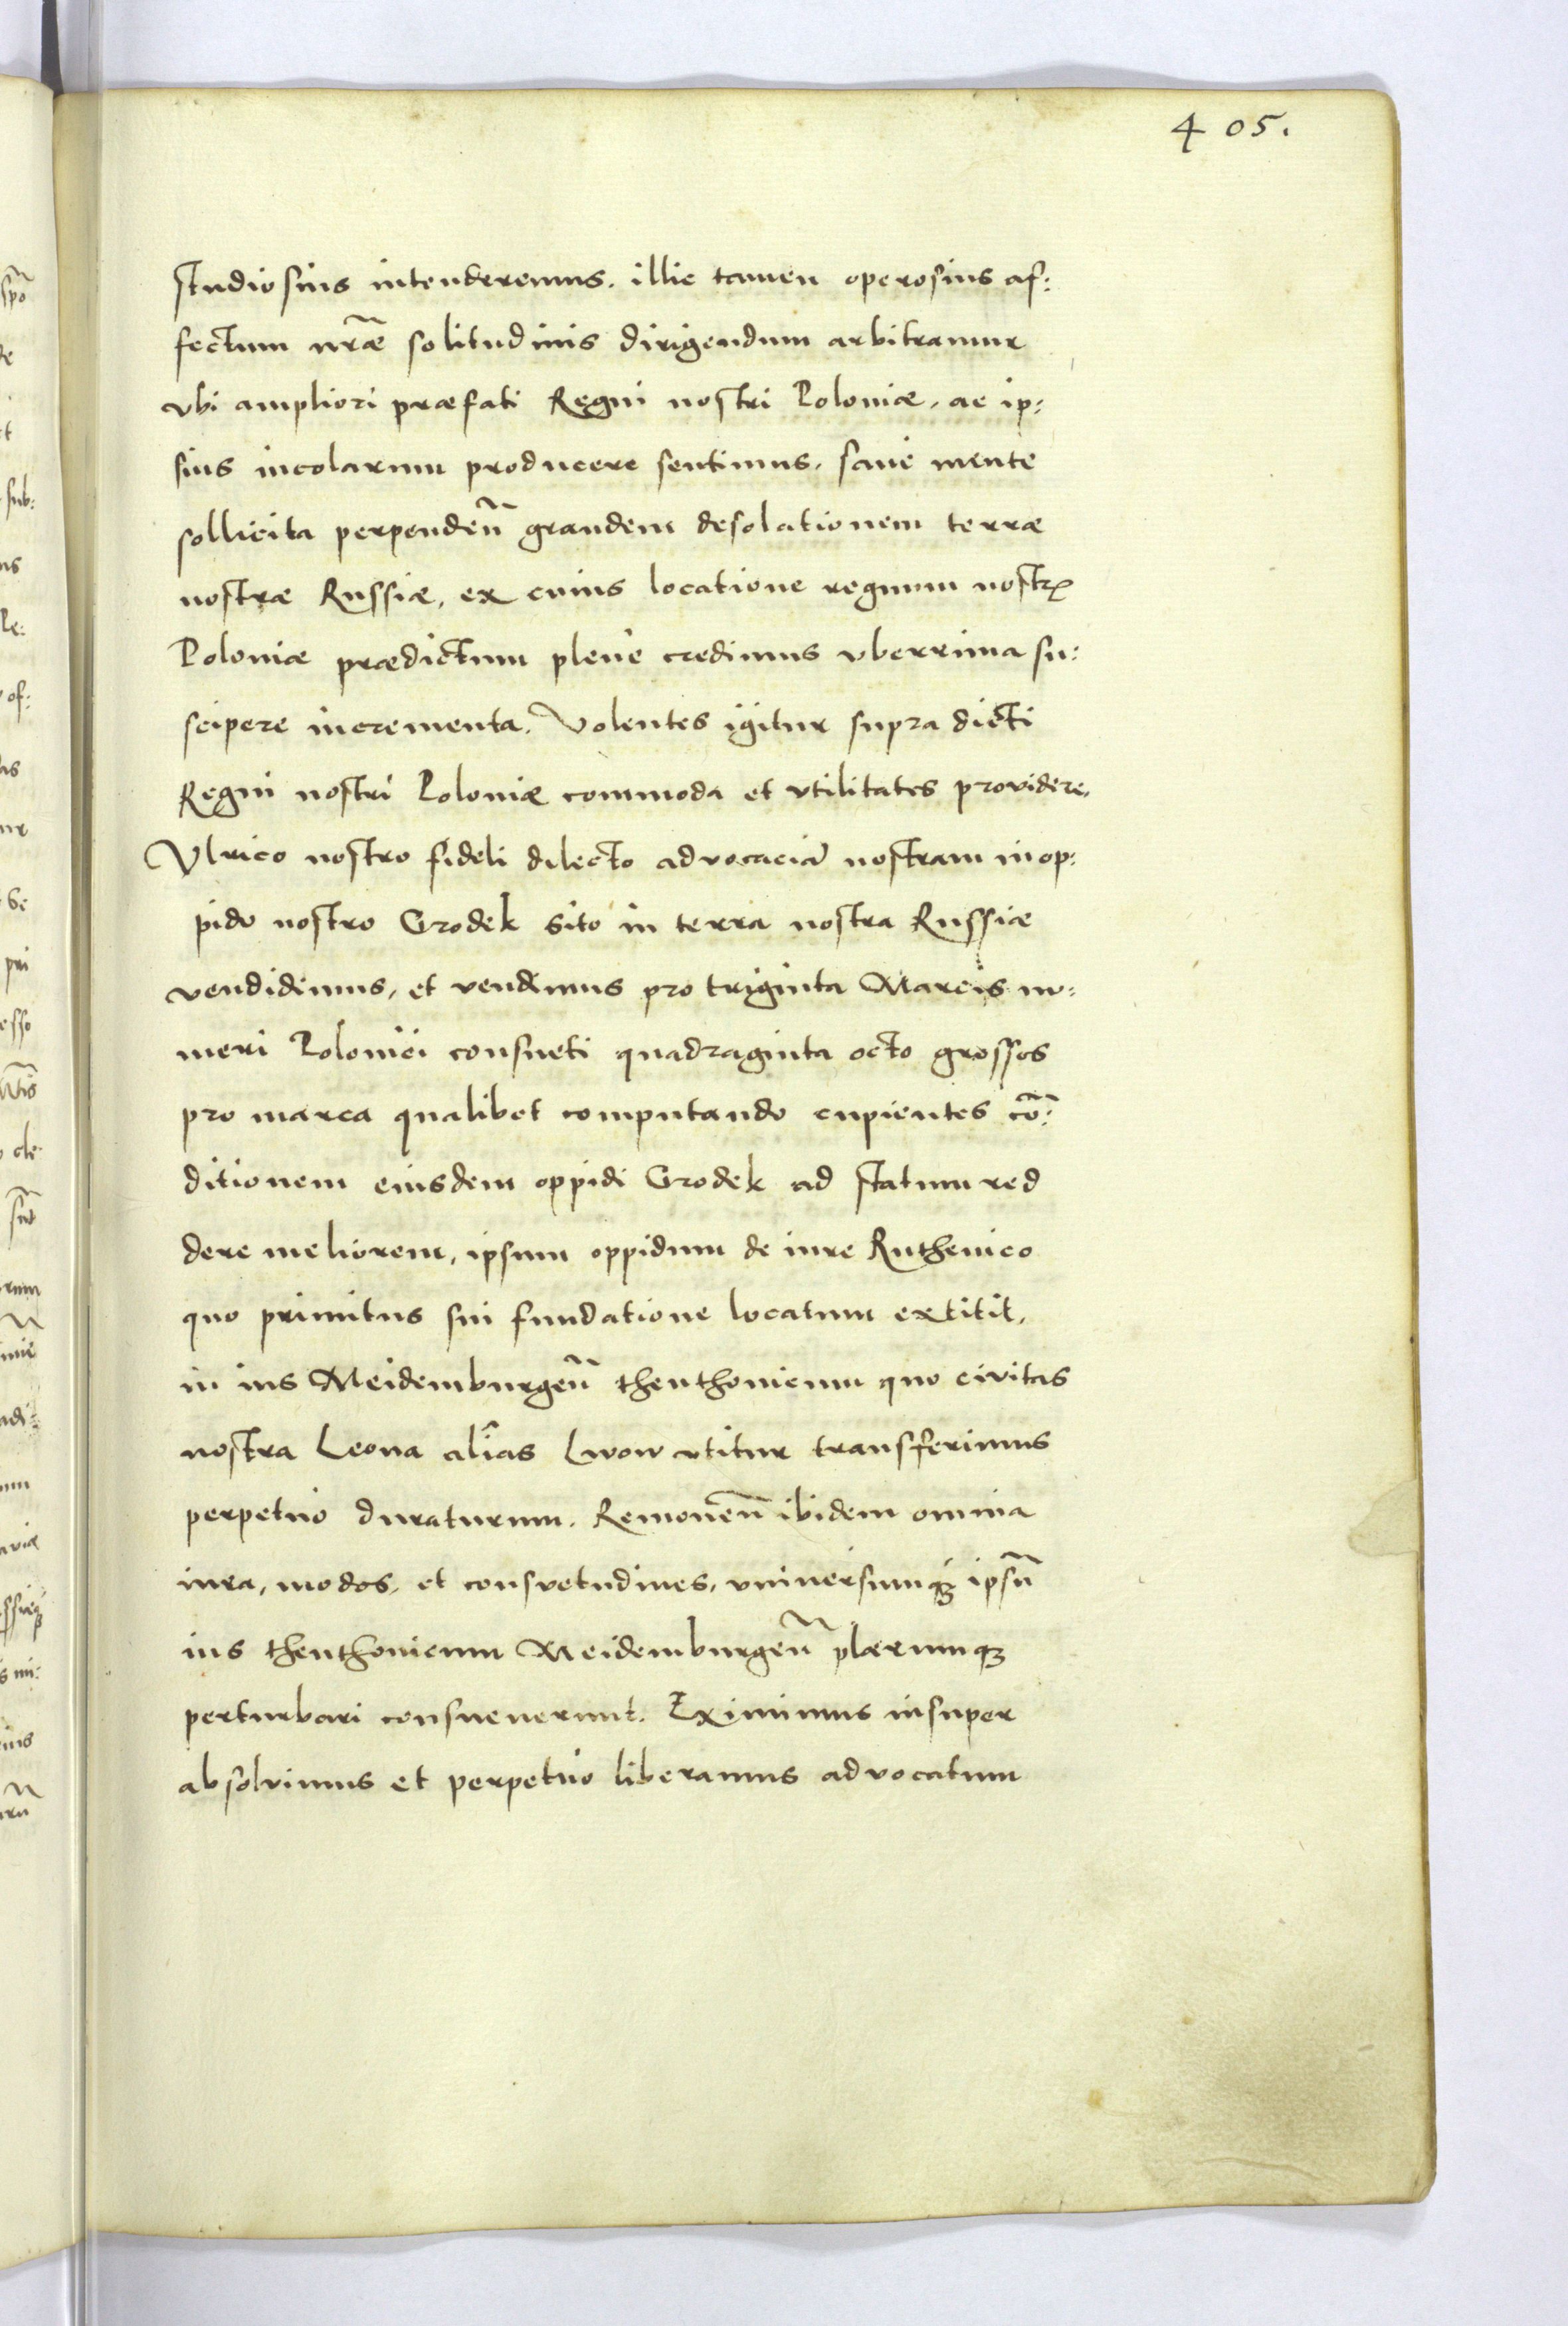 405.
studiosius intenderemus. illic tamen operosius af:
fectum nr̃æ solitudinis dirigendum arbitramur
vbi ampliori præfati Regni nostri Poloniæ, ac ip:
sius incolarum producere sentimus. sane mente
sollicita perpendeñ grandem desolationem terræ
nostræ Russiæ, ex cuius locatione regnum nostrũ
Poloniæ prædictum plene credimus vberrima su:
scipere incrementa. Volentes igitur supra dicti
Regni nostri Poloniæ commoda et vtilitates providere,
Vlrico nostro fideli dilecto advocaciã nostram in op:
pido nostro Grodek sito in terra nostra Russiæ
vendidimus, et vendimus pro triginta Marcis nu:
meri Polonici consueti quadraginta octo grossos
pro marca qualibet computando cupientes cõ:
ditionem eiusdem oppidi Grodek ad statum red
dere meliorem, ipsum oppidum de iure Ruthenico
quo primitus sui fundatione locatum extitit,
in ius Meidemburgeñ thenthonicum quo civitas
nostra Leona alias Lwow vtitur transferimus
perpetuo duraturum. Remoueñ ibidem omnia
iura, modos, et consvetudines, vniuersumq́ꝫ ipsũ
ius thenthonicum Meidemburgeñ plærumqꝫ
perturbari consueuerunt. Eximimus insuper
absolvimus et perpetuo liberamus advocatum